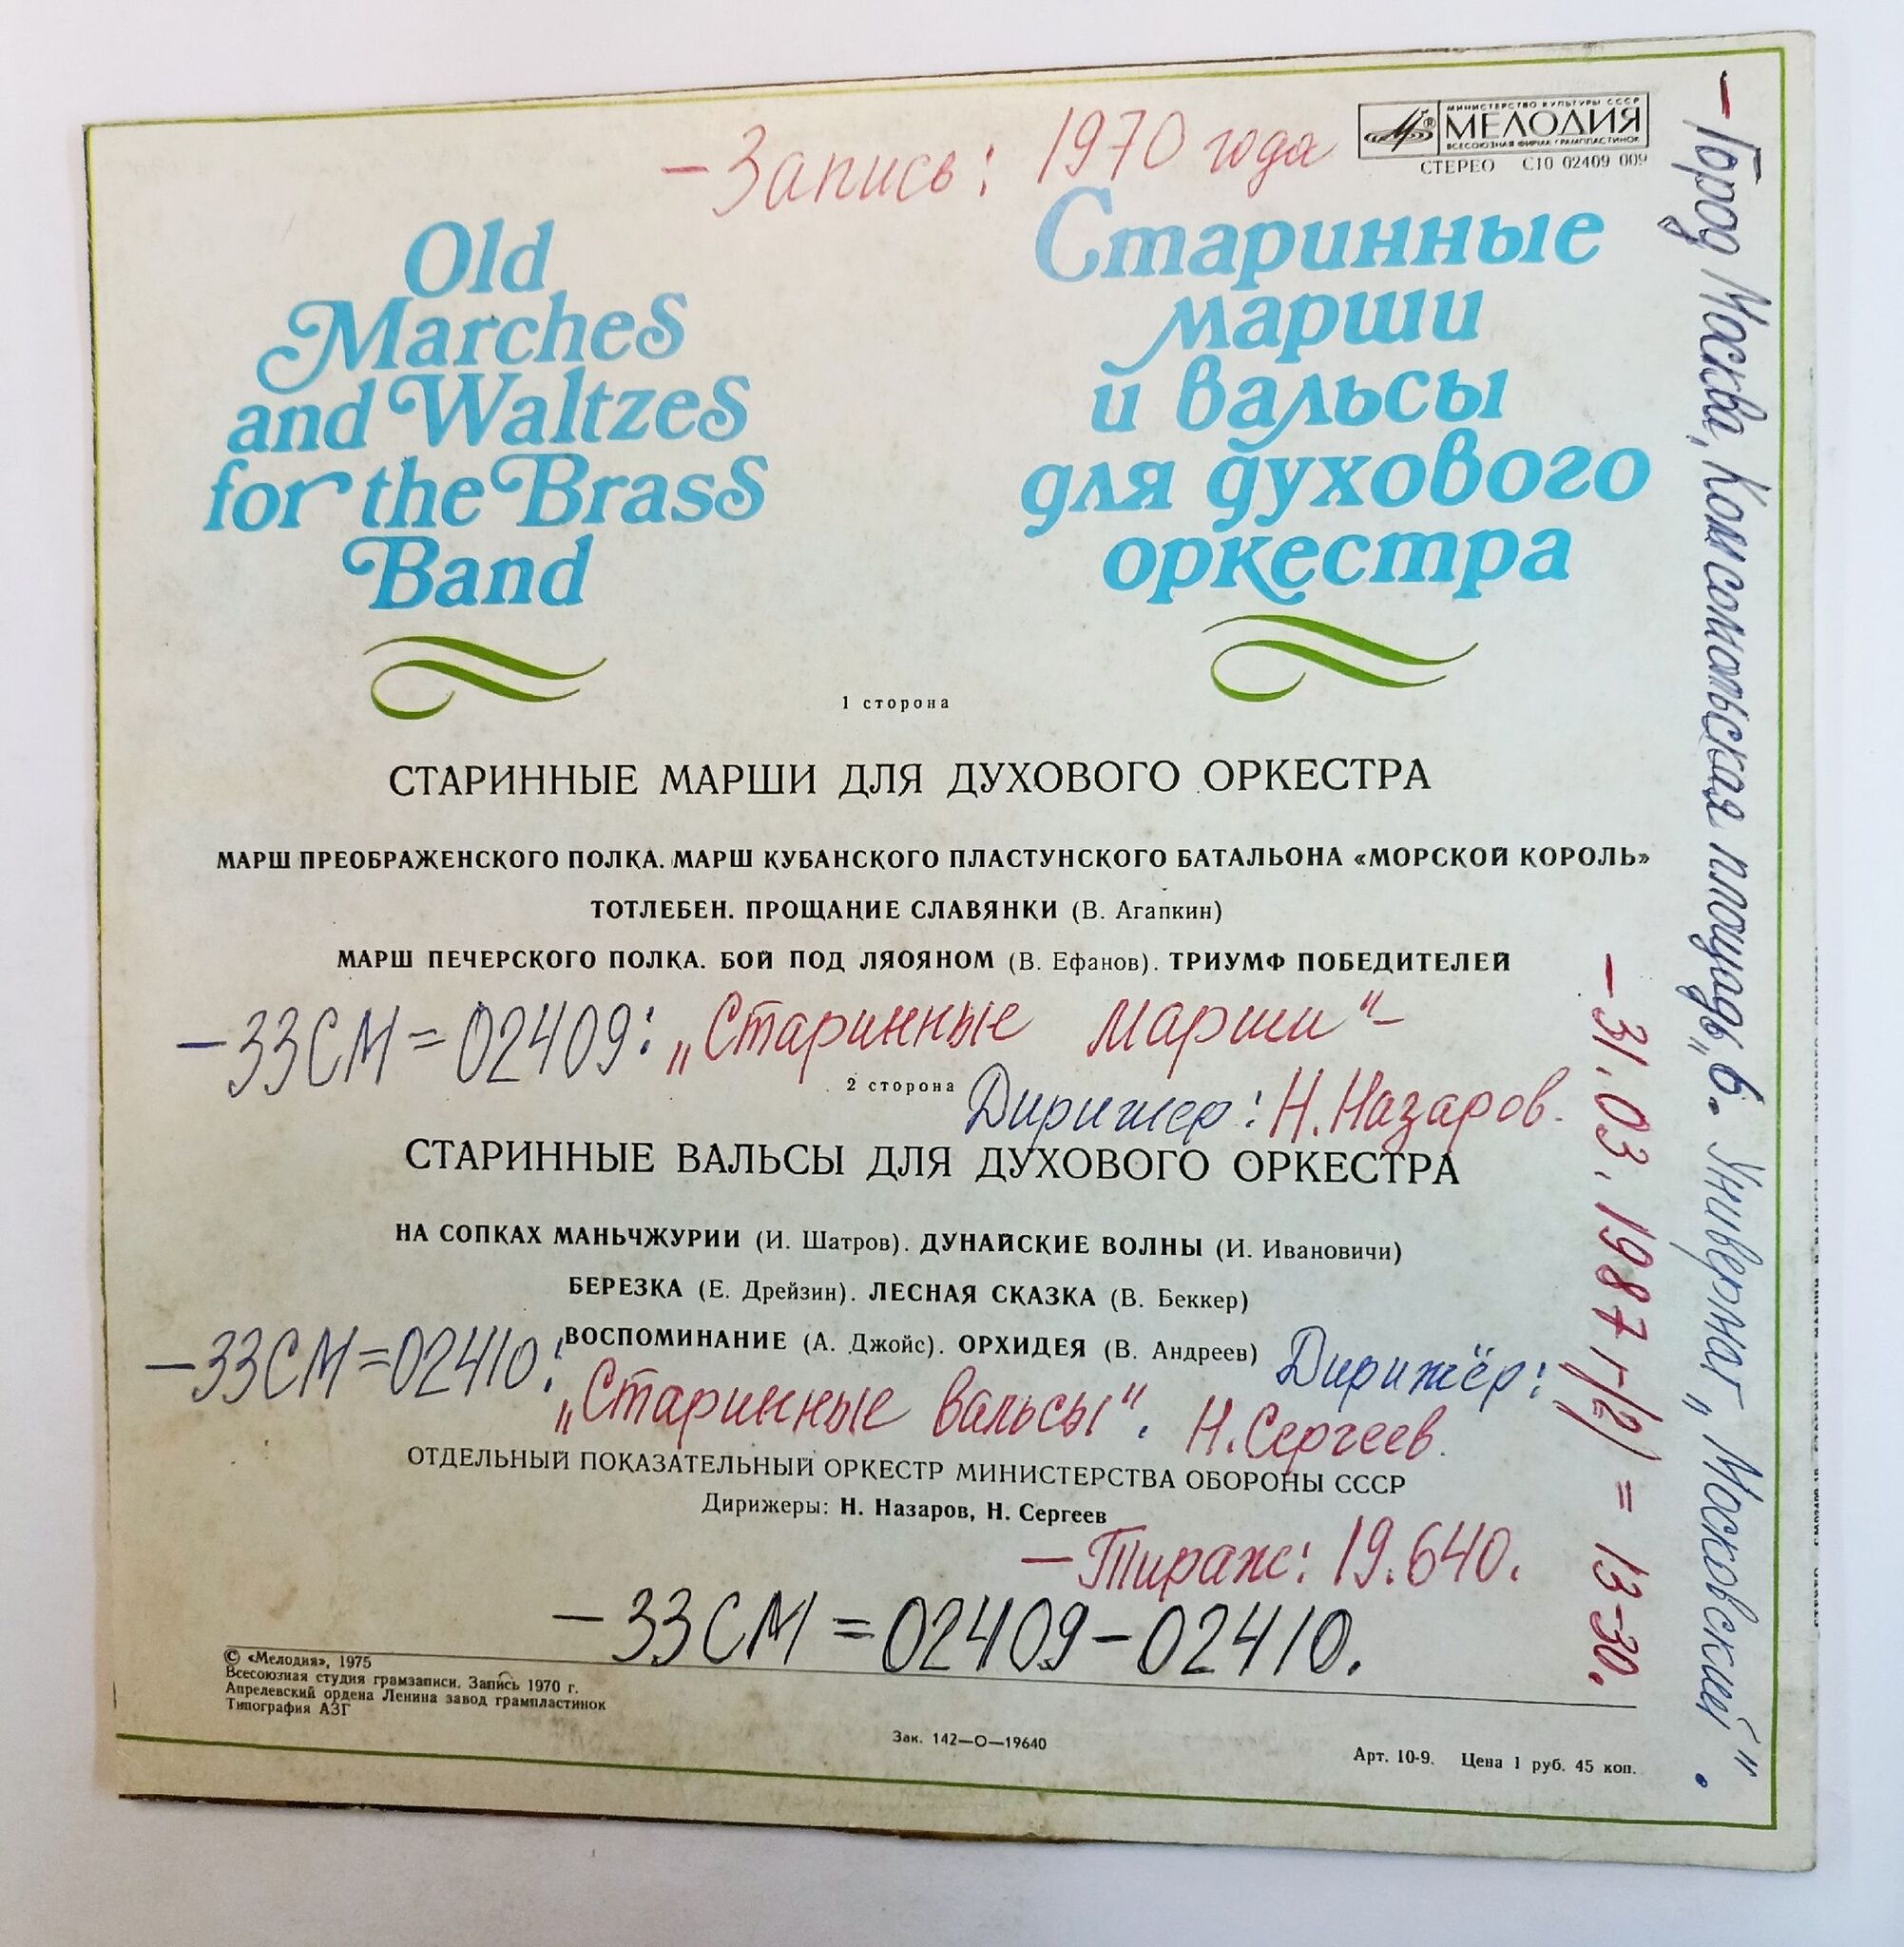 – Запись: 1970 года
МИНИСТЕРСТВО КУЛЬТУРЫ СССР
МЕЛОДИЯ
ВСЕСОЮЗНАЯ ФИРМА ГРАМПЛАСТИНОК
СТЕРЕО С10 02409 009
Old
Marches
and Waltzes
for the Brass
Band
Старинные
марши
и вальсы
для духового
оркестра
1 сторона
СТАРИННЫЕ МАРШИ ДЛЯ ДУХОВОГО ОРКЕСТРА
МАРШ ПРЕОБРАЖЕНСКОГО ПОЛКА. МАРШ КУБАНСКОГО ПЛАСТУНСКОГО БАТАЛЬОНА «МОРСКОЙ КОРОЛЬ»
ТОТЛЕБЕН. ПРОЩАНИЕ СЛАВЯНКИ (В. Агапкин)
МАРШ ПЕЧЕРСКОГО ПОЛКА. БОЙ ПОД ЛЯОЯНОМ (В. Ефанов). ТРИУМФ ПОБЕДИТЕЛЕЙ
– 33СМ = 02409: „Старинные марши“ –
2 сторона
Дирижер: Н. Назаров.
СТАРИННЫЕ ВАЛЬСЫ ДЛЯ ДУХОВОГО ОРКЕСТРА
НА СОПКАХ МАНЬЧЖУРИИ (И. Шатров). ДУНАЙСКИЕ ВОЛНЫ (И. Ивановичи)
БЕРЕЗКА (Е. Дрейзин). ЛЕСНАЯ СКАЗКА (В. Беккер)
ВОСПОМИНАНИЕ (А. Джойс). ОРХИДЕЯ (В. Андреев)
– 33СМ = 02410: Дирижёр:
„Старинные вальсы“. Н. Сергеев.
ОТДЕЛЬНЫЙ ПОКАЗАТЕЛЬНЫЙ ОРКЕСТР МИНИСТЕРСТВА ОБОРОНЫ СССР
Дирижеры: Н. Назаров, Н. Сергеев
– Тираж: 19.640.
– 33СМ = 02409 – 02410.
© «Мелодия», 1975
Всесоюзная студия грамзаписи. Запись 1970 г.
Апрелевский ордена Ленина завод грампластинок
Типография АЗГ
Зак. 142—О—19640
Арт. 10-9. Цена 1 руб. 45 коп.
– Город Москва, Комсомольская площадь, 6. Универмаг „Московский“.
– 31.03.1987 г (2) = 13-30.